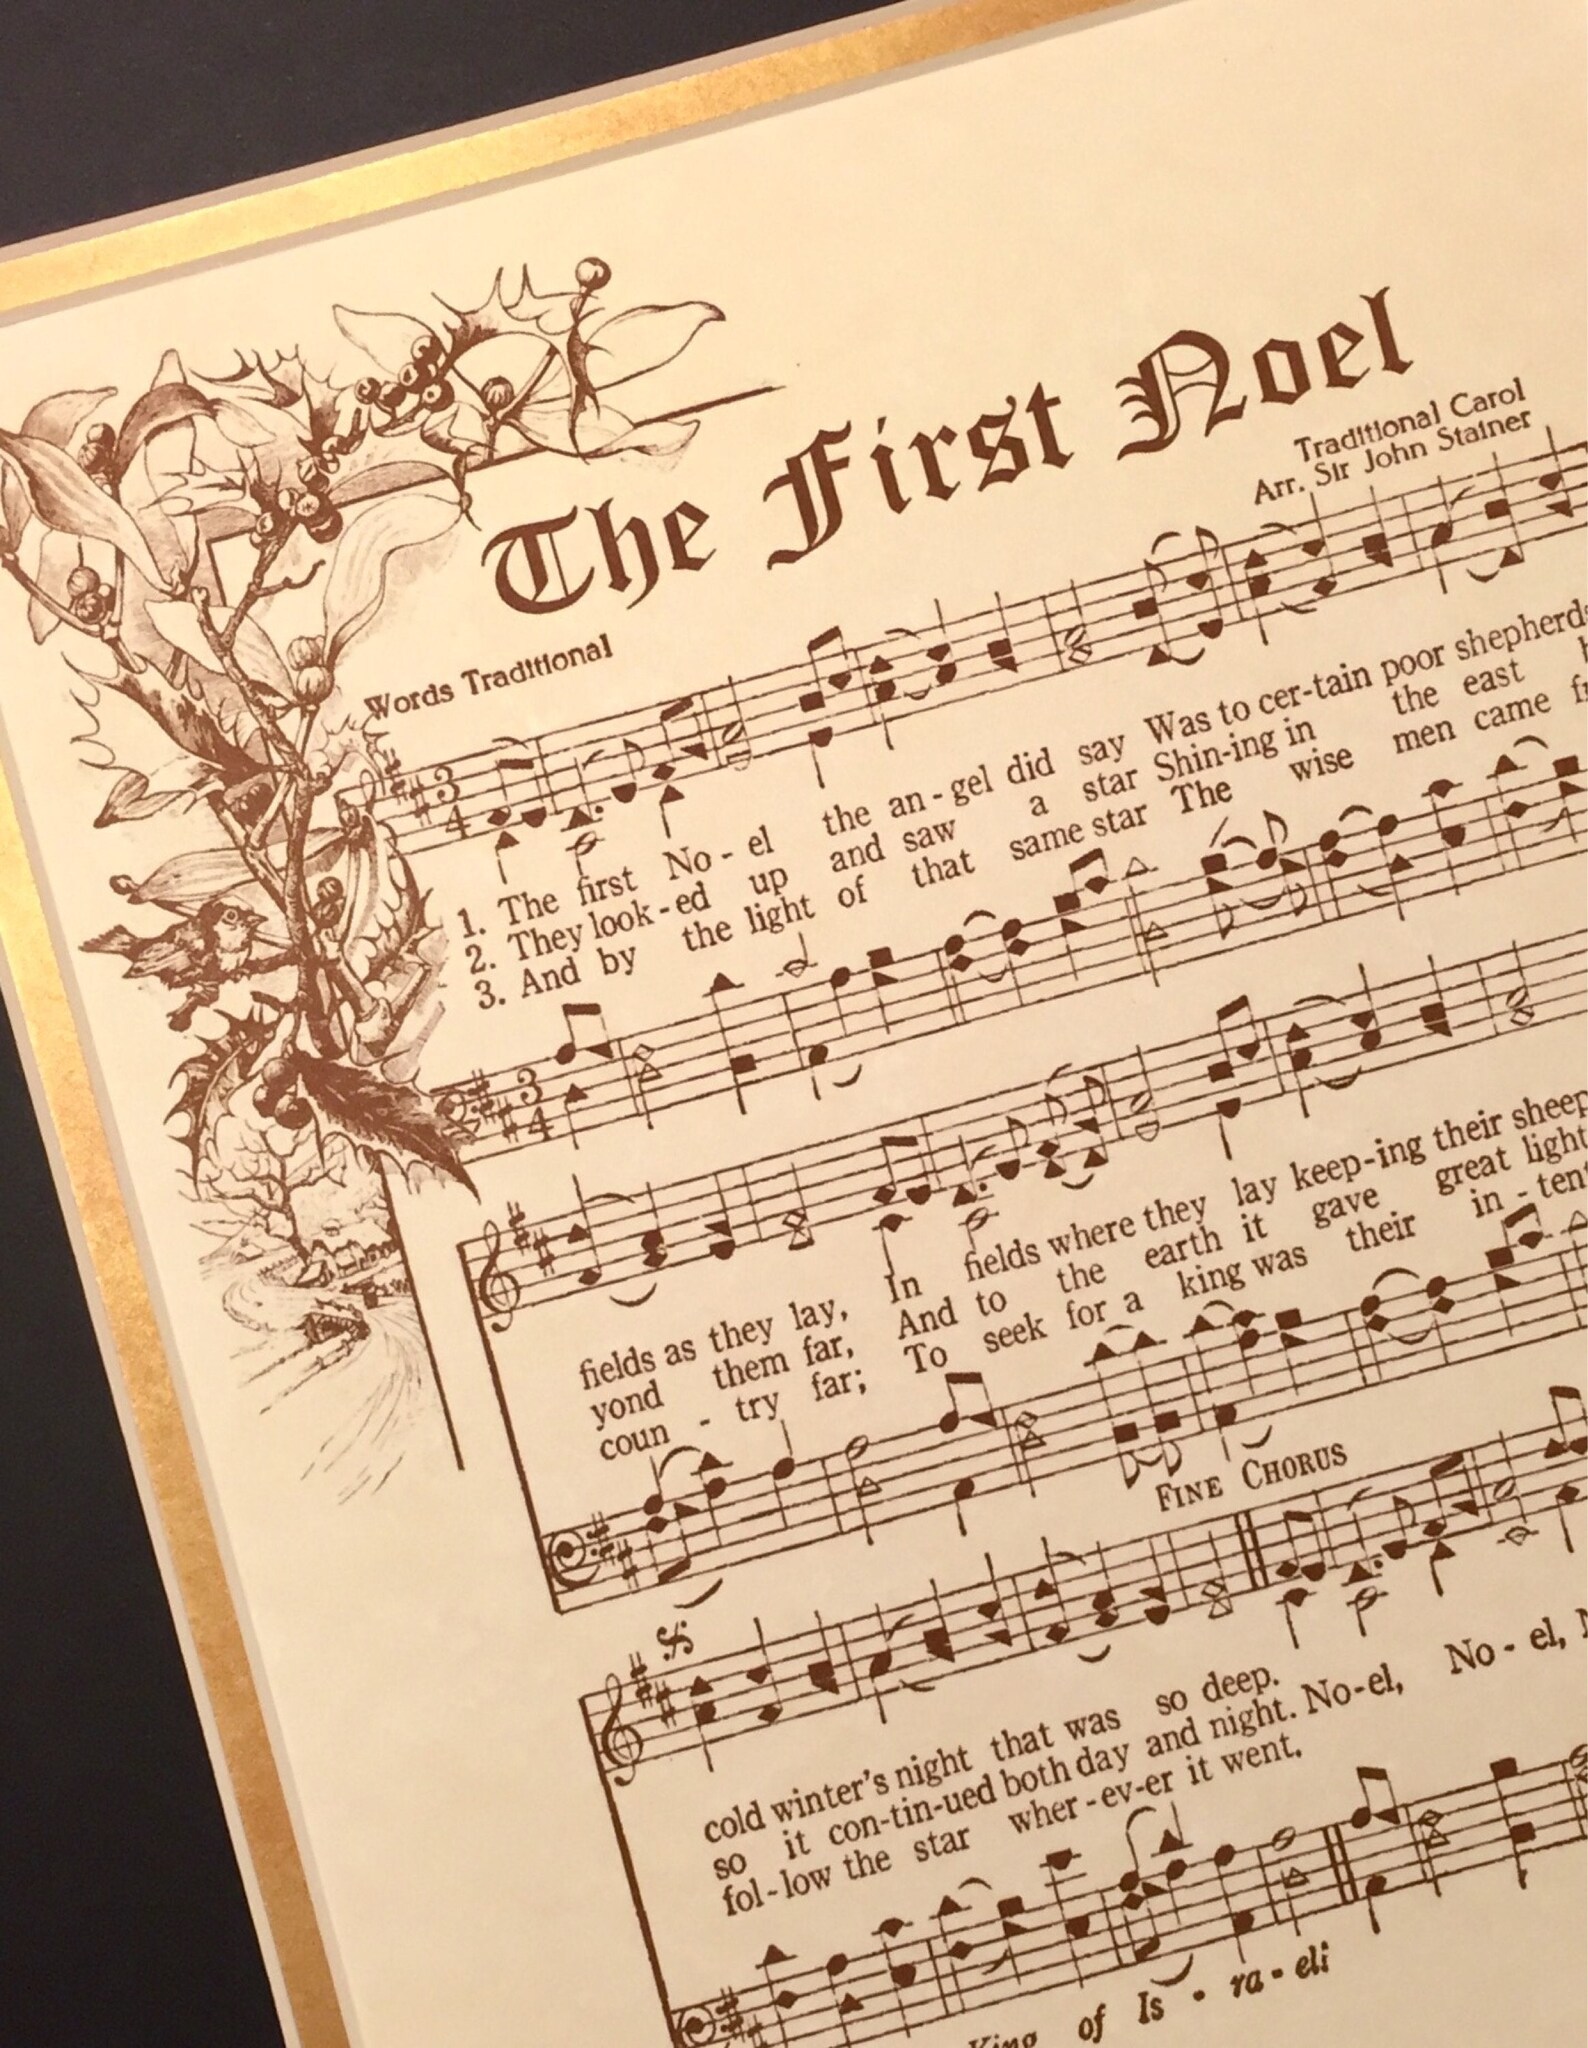 The First Noel
Traditional Carol
Arr. Sir John Stainer
Words Traditional
3
4
1. The first No - el the an - gel did say Was to cer-tain poor shepherds
2. They look - ed up and saw a star Shin-ing in the east
3. And by the light of that same star The wise men came
3
4
fields as they lay, In fields where they lay keep-ing their sheep
yond them far, And to the earth it gave great light
coun - try far; To seek for a king was their in - tent
FINE CHORUS
cold winter's night that was so deep.
so it con-tin-ued both day and night. No-el, No - el,
fol-low the star wher-ev-er it went.
King of Is - ra - el!